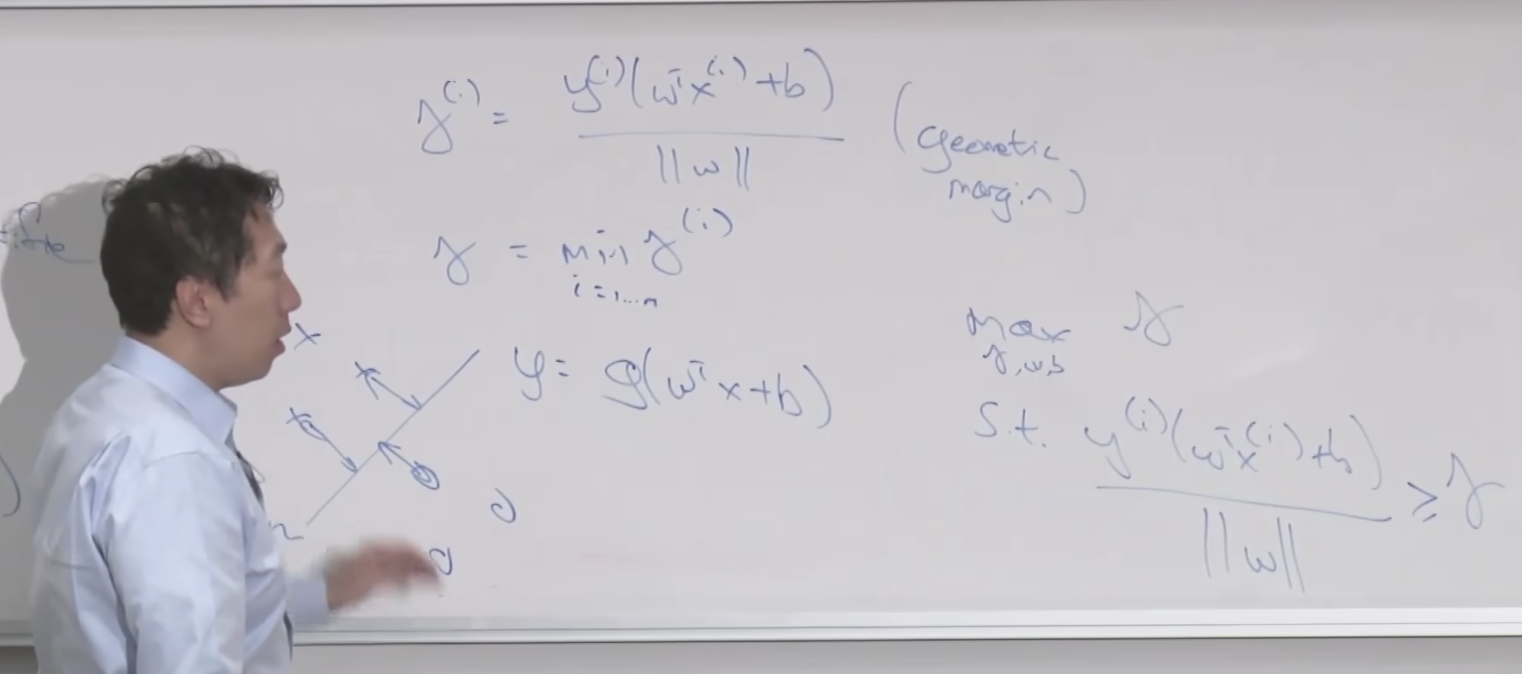 γ^(i) = y^(i)(w^T x^(i) + b) / ||w|| (geometric margin)
γ = min γ^(i)
i=1...n
y = g(w^T x + b)
max γ
γ,w,b
s.t. y^(i)(w^T x^(i) + b) / ||w|| ≥ γ